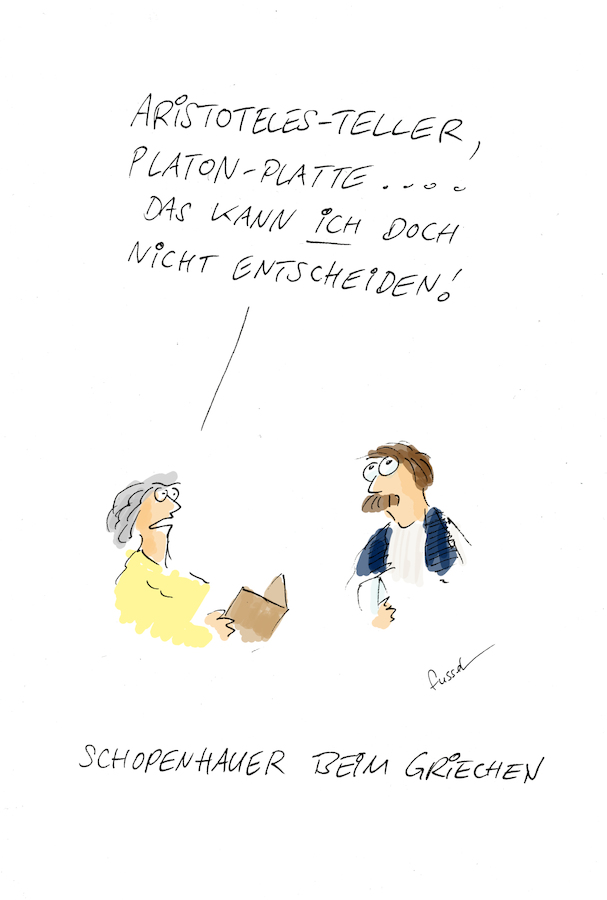 ARISTOTELES-TELLER,
PLATON-PLATTE....
DAS KANN ICH DOCH
NICHT ENTSCHEIDEN!
fussel
SCHOPENHAUER BEIM GRIECHEN